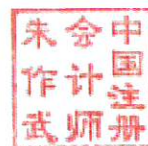 中国注册
会计师
朱作武